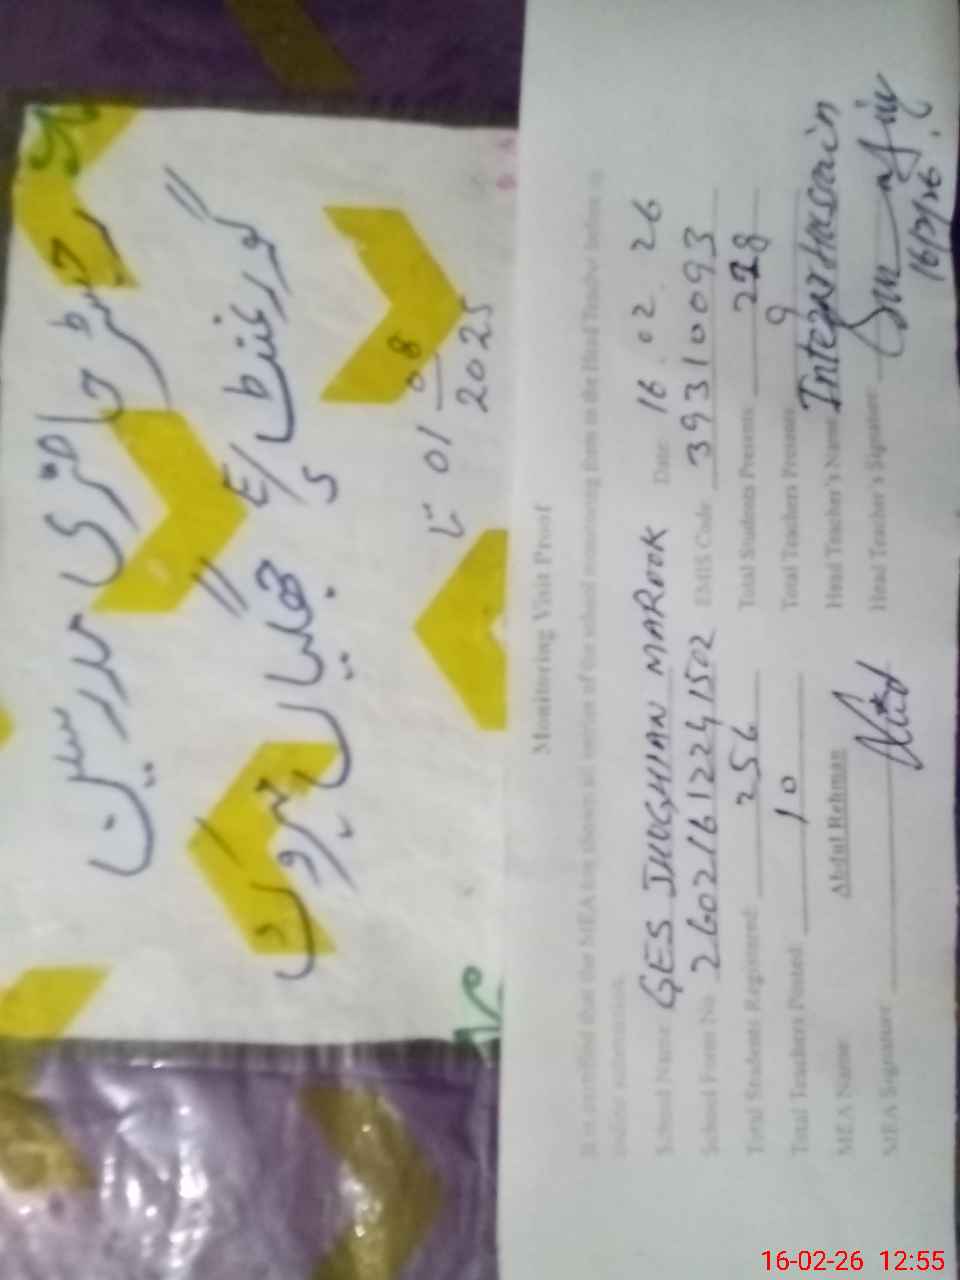 رجسٹر حاضری مدرسین
گورنمنٹ E/S
جھگیاں
تا 01 08
2025
Monitoring Visit Proof
It is certified that the MEA has shown all entries of the school monitoring form to the Head Teacher before
School Name GES JHUGHIAN MAROOK Date 16.02.26
School Form No. 26021612241502 EMIS Code 39310093
Total Students Registered: 256 Total Students Present: 228
Total Teachers Posted 10 Total Teachers Present 9
MEA Name Abdul Rehman Head Teacher's Name
MEA Signature Head Teacher's Signature
16-02-26 12:55